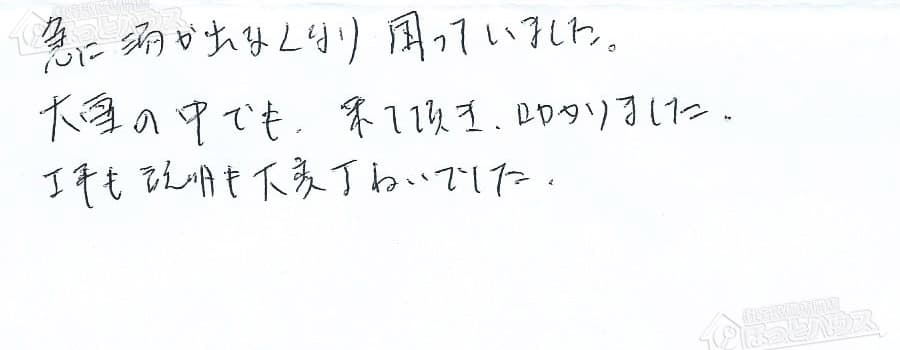 急に湯が出なくなり困っていました。
大雪の中でも、来て頂き、助かりました。
工事も説明も大変丁ねいでした。
ほっとハウス